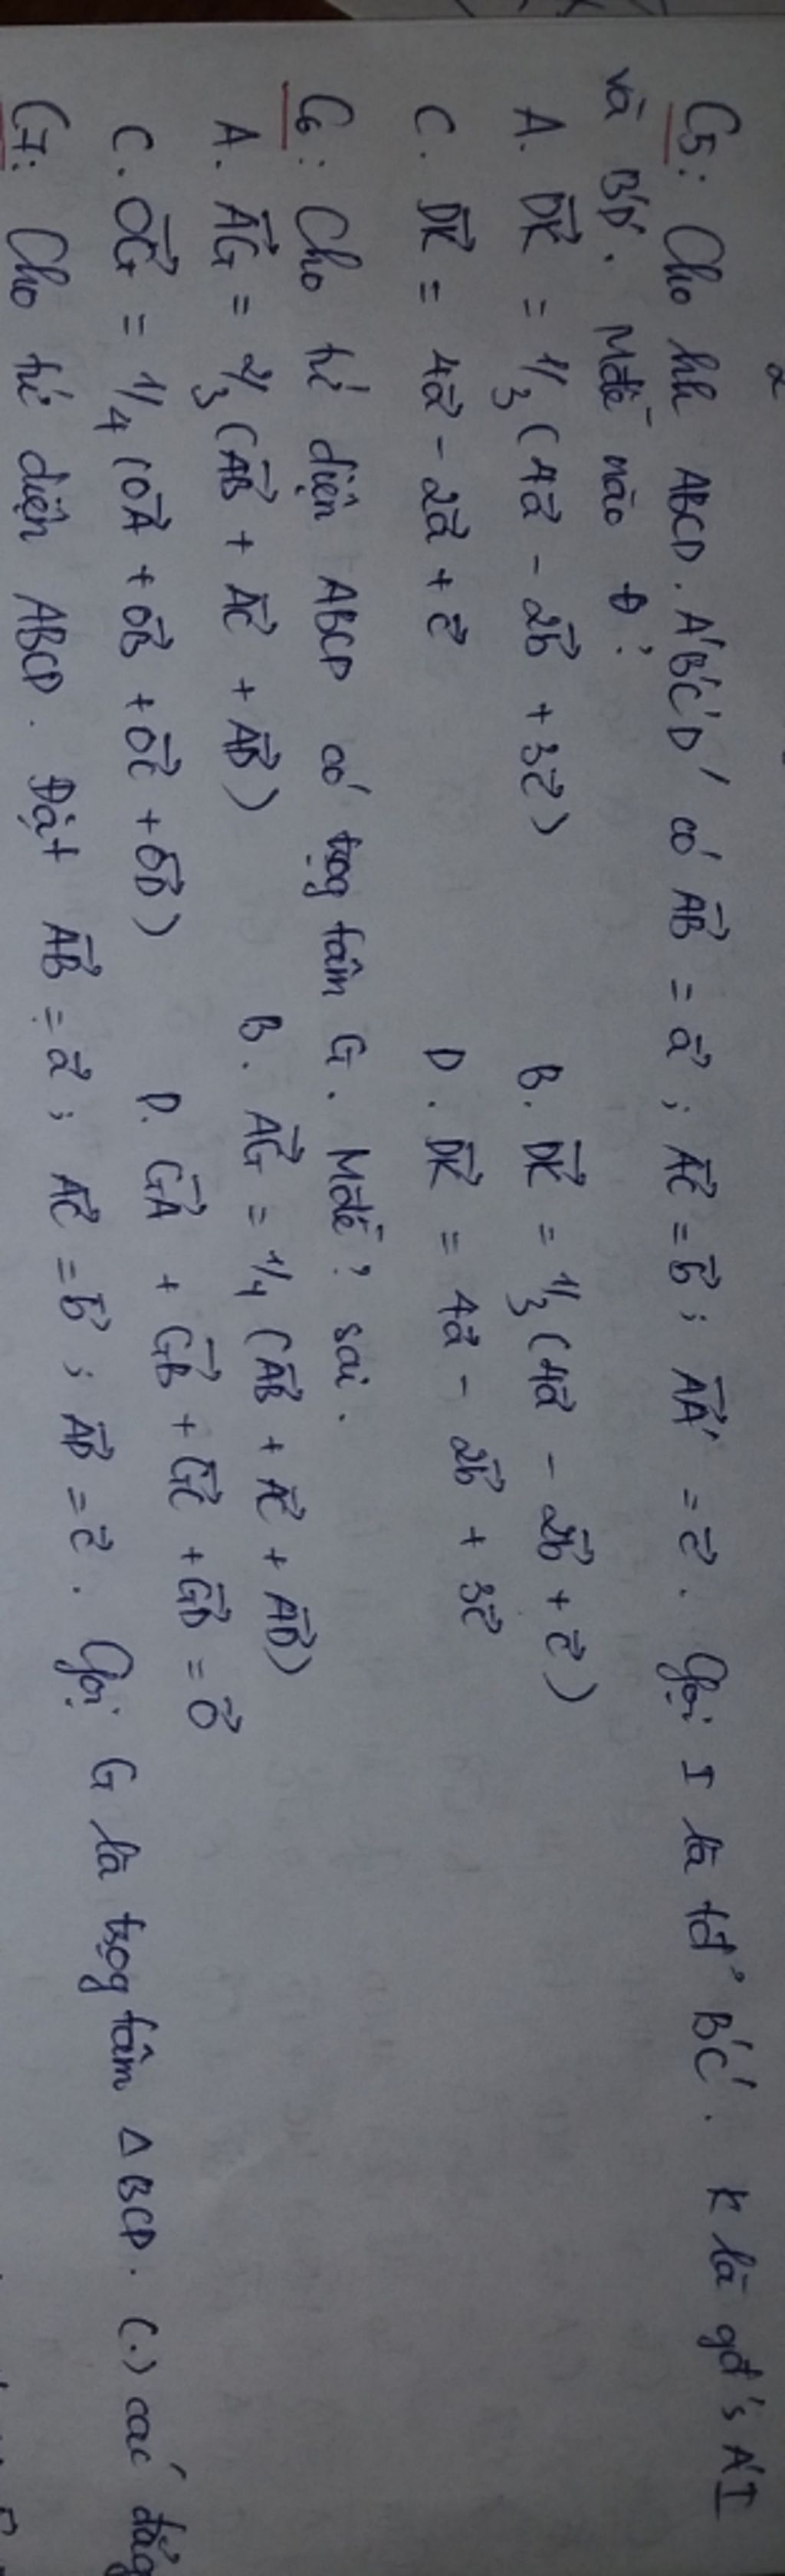 C5: Cho hh ABCD. A'B'C'D' có AB⃗ = a⃗ ; AC⃗ = b⃗ ; AA'⃗ = c⃗ . Gọi I là tđ' B'C'. K là gđ's A'I
và B'D'. Mđề nào Đ?
A. DK⃗ = 1/3 (4a⃗ - 2b⃗ + 3c⃗)
B. DK⃗ = 1/3 (4a⃗ - 2b⃗ + c⃗)
C. DK⃗ = 4a⃗ - 2a⃗ + c⃗
D. DK⃗ = 4a⃗ - 2b⃗ + 3c⃗
C6: Cho tứ diện ABCD có trọg tâm G. Mđề ? sai.
A. AG⃗ = 2/3 (AB⃗ + AC⃗ + AD⃗)
B. AG⃗ = 1/4 (AB⃗ + AC⃗ + AD⃗)
C. OG⃗ = 1/4 (OA⃗ + OB⃗ + OC⃗ + OD⃗)
D. GA⃗ + GB⃗ + GC⃗ + GD⃗ = 0⃗
C7: Cho tứ diện ABCD. Đặt AB⃗ = a⃗ ; AC⃗ = b⃗ ; AD⃗ = c⃗ . Gọi G là trọg tâm Δ BCD. (.) các đẳg